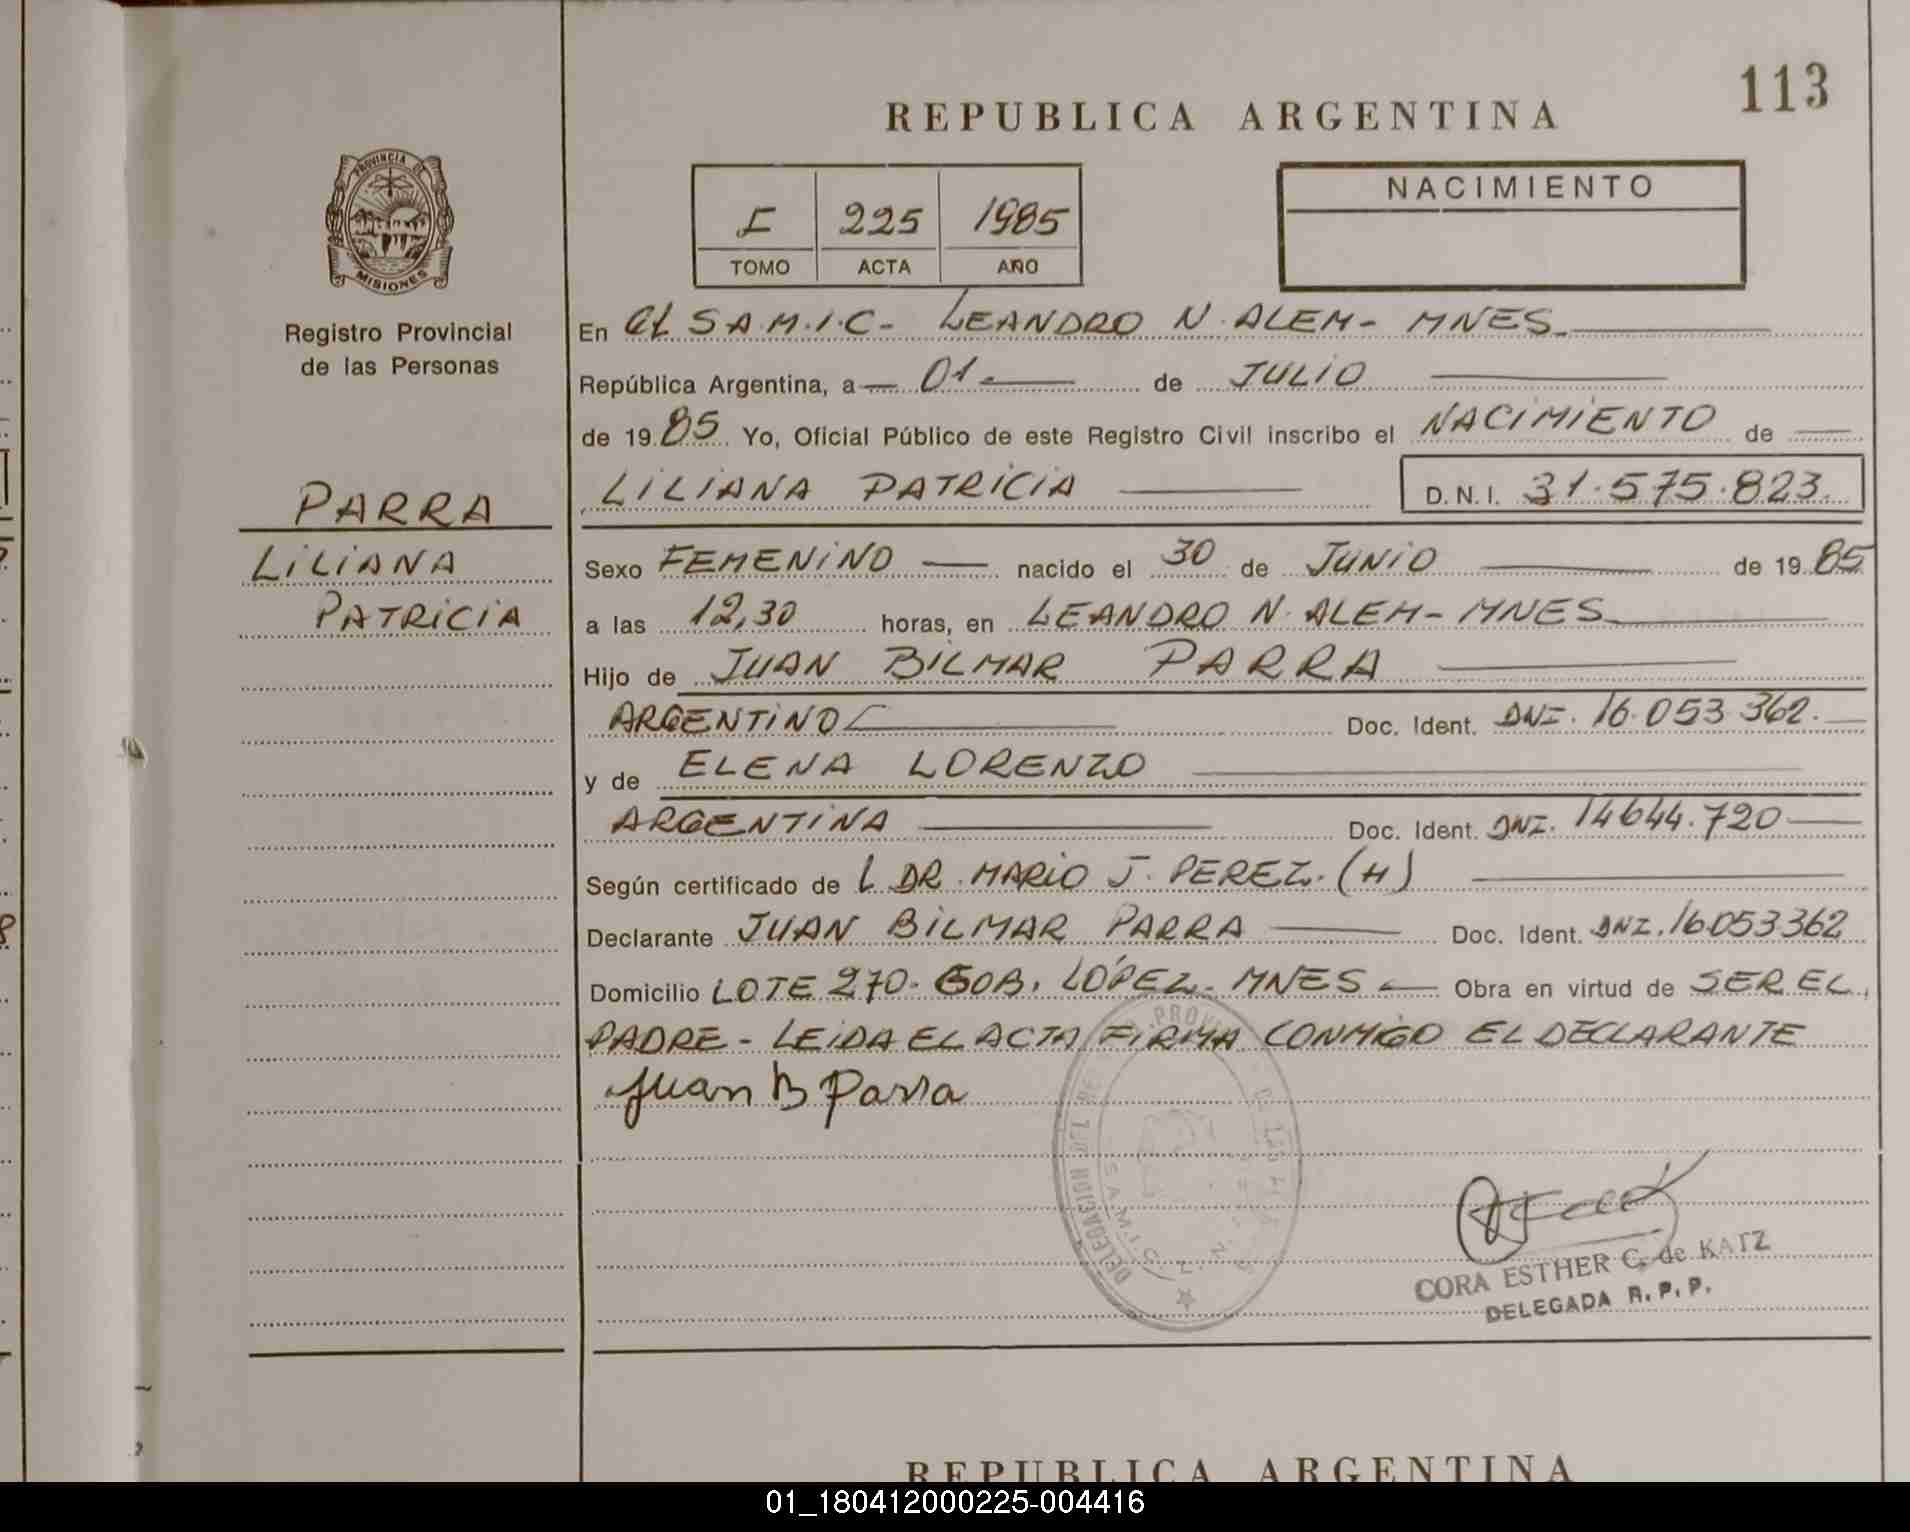 113
REPUBLICA ARGENTINA
PROVINCIA DE
MISIONES
Registro Provincial
de las Personas
I 225 1985
TOMO ACTA AÑO
NACIMIENTO
En el SAMIC- LEANDRO N. ALEM- MNES.
República Argentina, a 01- de JULIO
de 1985 Yo, Oficial Público de este Registro Civil inscribo el NACIMIENTO de
LILIANA PATRICIA D.N.I. 31.575.823.
PARRA
LILIANA
PATRICIA
Sexo FEMENINO nacido el 30 de JUNIO de 1985
a las 12,30 horas, en LEANDRO N. ALEM- MNES
Hijo de JUAN BILMAR PARRA
ARGENTINO Doc. Ident. DNI. 16.053.362.
y de ELENA LORENZO
ARGENTINA Doc. Ident. DNI. 14644.720
Según certificado de L DR. MARIO J. PEREZ. (H)
Declarante JUAN BILMAR PARRA Doc. Ident. DNI. 16053362
Domicilio LOTE 270- GOB. LÓPEZ- MNES Obra en virtud de SER EL
PADRE- LEIDA EL ACTA FIRMA CONMIGO EL DECLARANTE
Juan B Parra
DELEGACION DEL
CORA ESTHER C. de KATZ
DELEGADA R.P.P.
REPUBLICA ARGENTINA
01_180412000225-004416